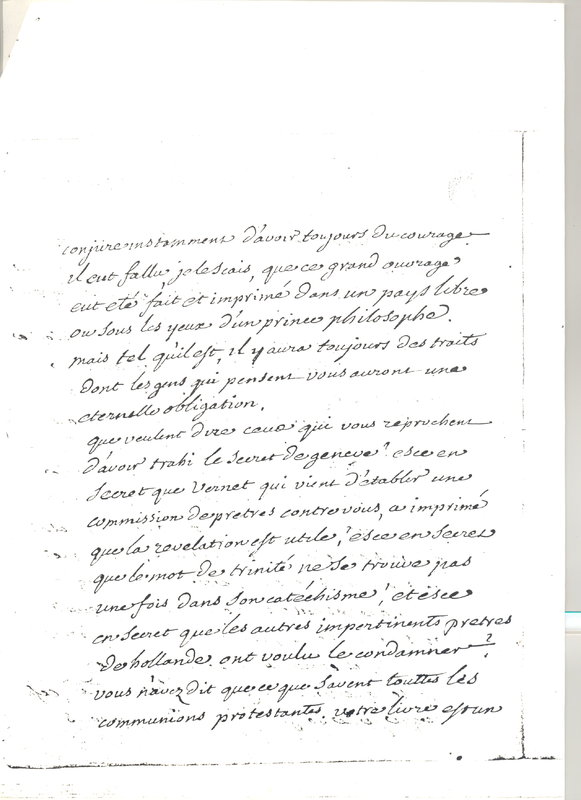 conjure instamment d'avoir toujours du courage
il eut fallu, je le scais, que ce grand ouvrage
eut eté fait et imprimé dans un pays libre
ou sous les yeux d'un prince philosophe.
mais tel qu'il est, il y aura toujours des traits
dont les gens qui pensent vous auront une
eternelle obligation.
que veulent dire ceux qui vous reprochent
d'avoir trahi le secret de geneve? esce en
secret que vernet qui vient d'établir une
commission de pretres contre vous, a imprimé
que la revelation est utile? esce en secret
que le mot de trinité ne se trouve pas
une fois dans son catéchisme? et esce
en secret que les autres impertinents pretres
de hollande ont voulu le condamner?
vous n'avez dit que ce que savent touttes les
communions protestantes. votre livre est un